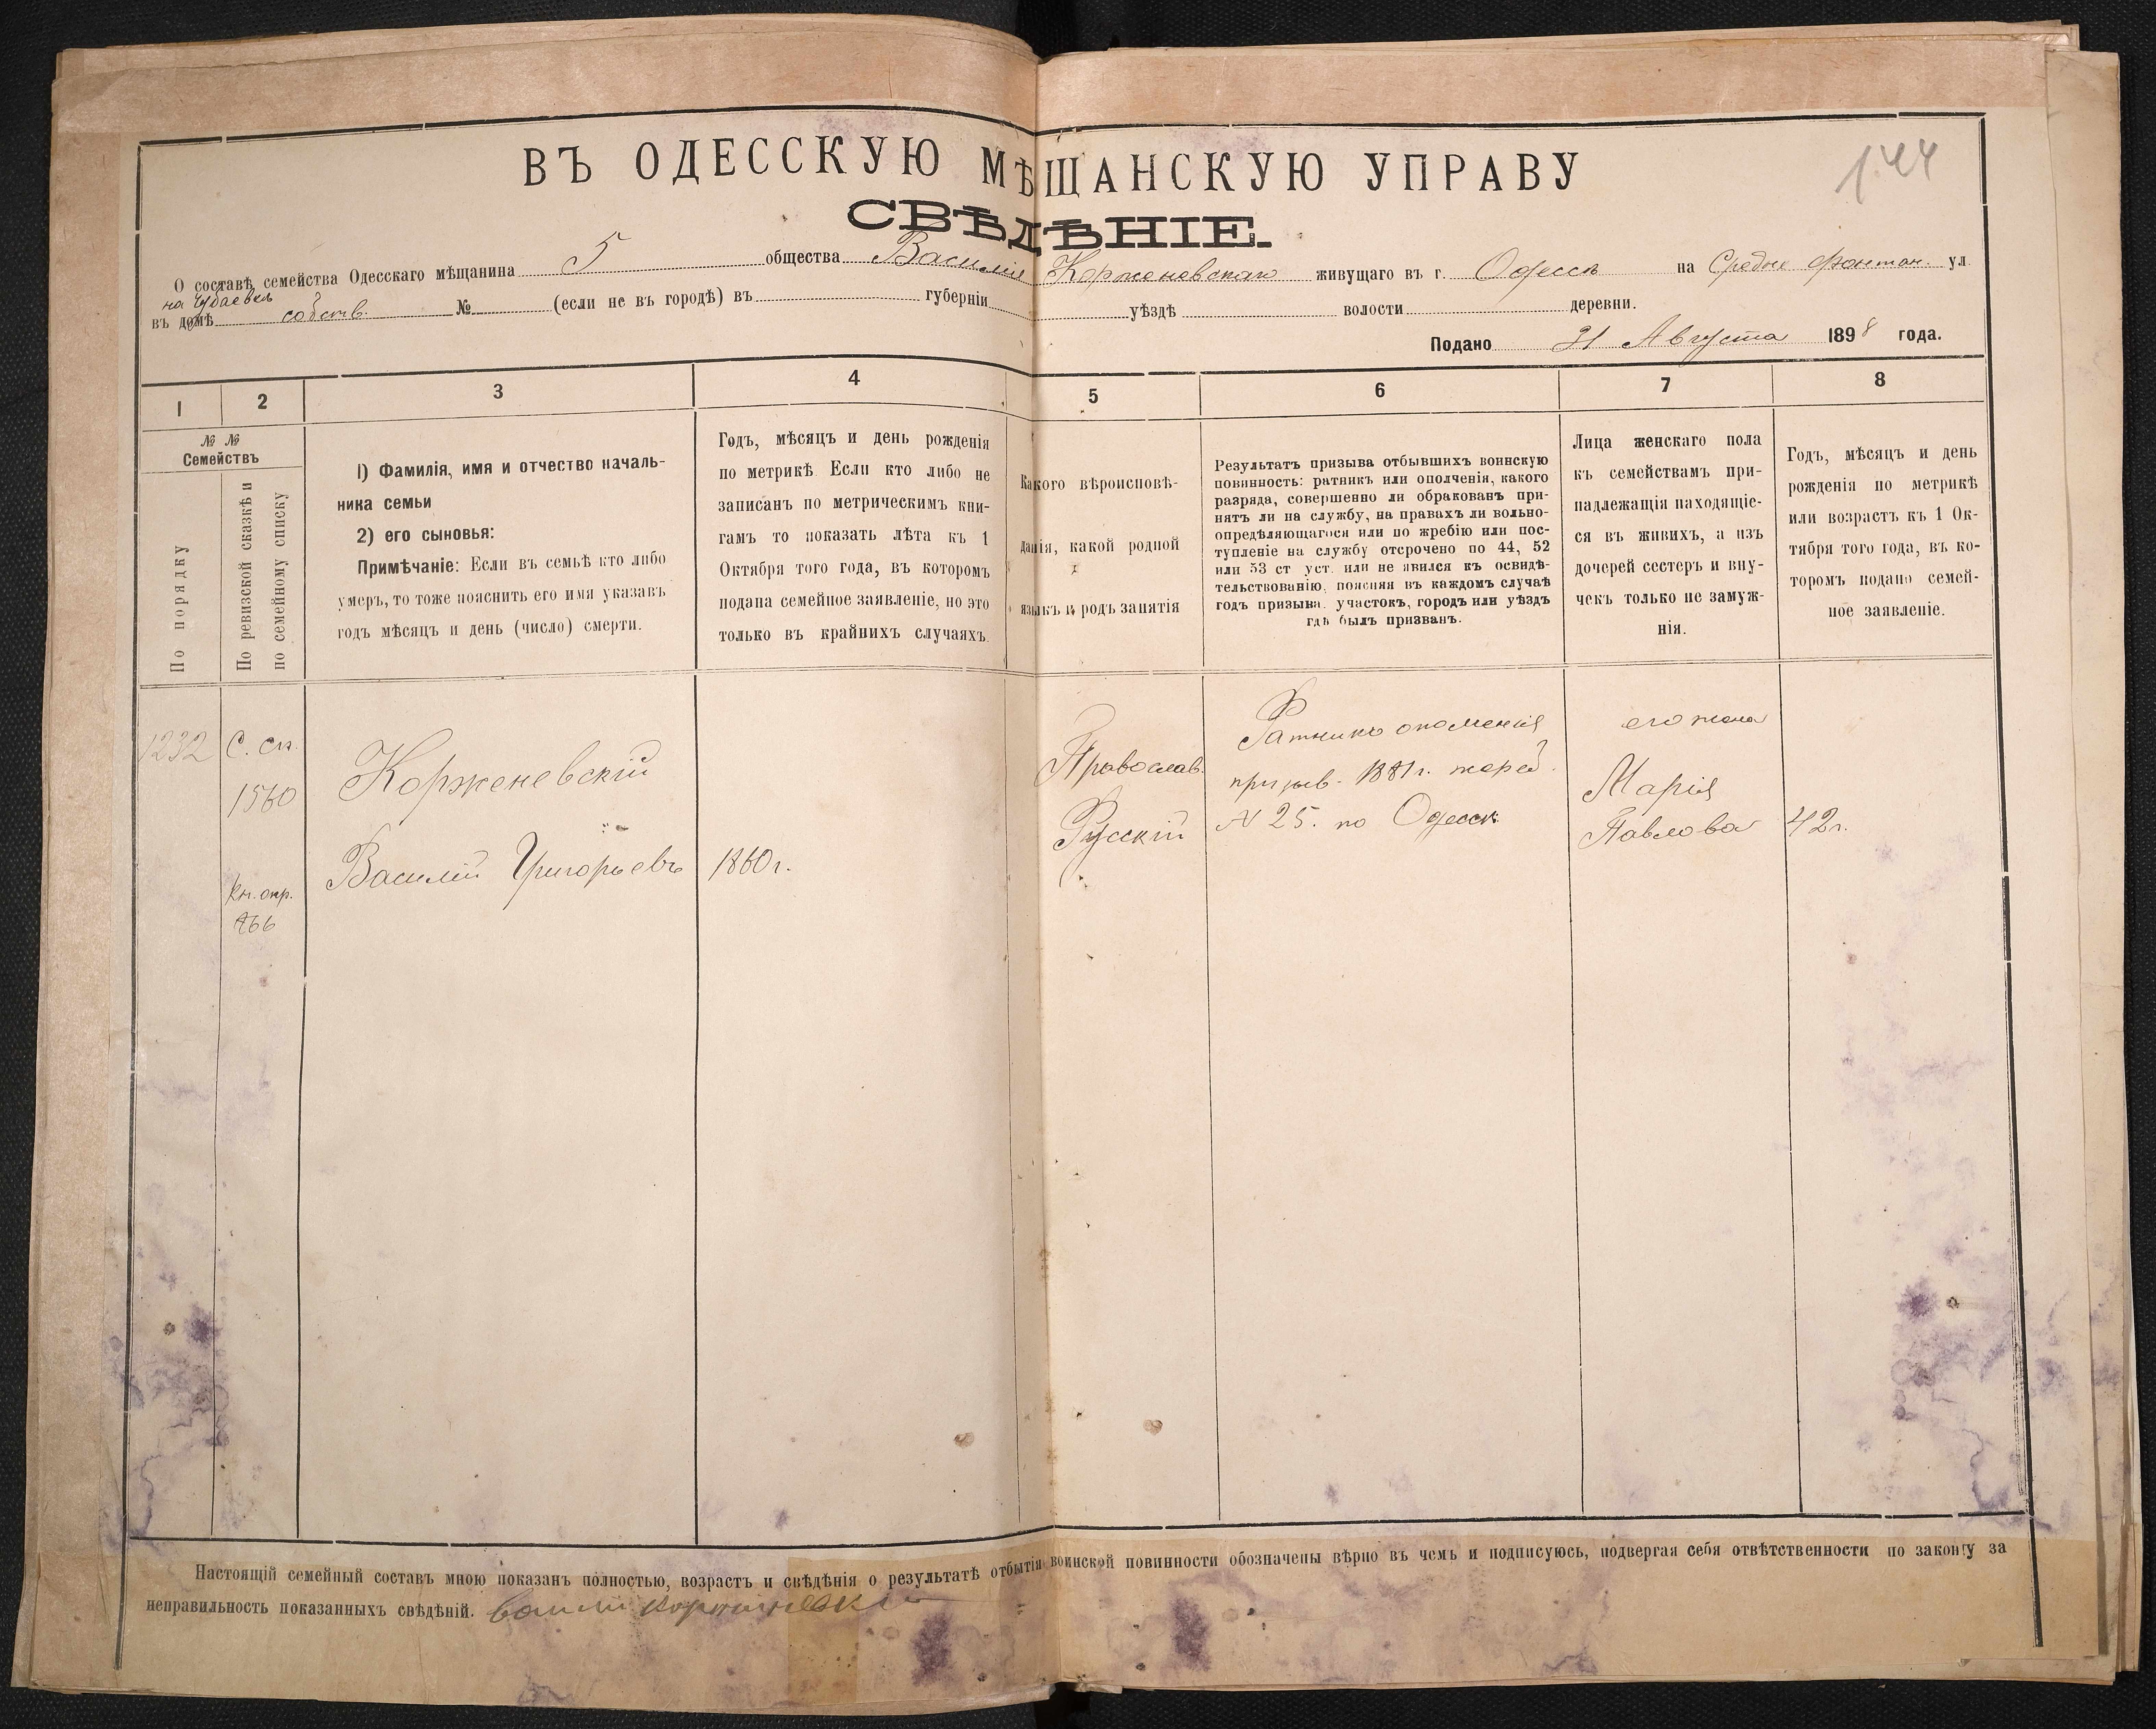 144
ВЪ ОДЕССКУЮ МѢЩАНСКУЮ УПРАВУ
СВѢДѢНІЕ.
О составѣ семейства Одесскаго мѣщанина 5 общества Василія Корженевскаго живущаго въ г. Одессѣ на Средне Фонтан. ул.
на Чубаевкѣ
въ домѣ собств. № (если не въ городѣ) въ губерніи уѣздѣ волости деревни.
Подано 21 Августа 1898 года.
1 2 3 4 5 6 7 8
№ №
Семействъ
По порядку
По ревизской сказкѣ и
по семейному списку
1) Фамилія, имя и отчество началь-
ника семьи
2) его сыновья:
Примѣчаніе: Если въ семьѣ кто либо
умеръ, то тоже пояснить его имя указавъ
годъ мѣсяцъ и день (число) смерти.
Годъ, мѣсяцъ и день рожденія
по метрикѣ Если кто либо не
записанъ по метрическимъ кни-
гамъ то показать лѣта къ 1
Октября того года, въ которомъ
подана семейное заявленіе, но это
только въ крайнихъ случаяхъ.
Какого вѣроисповѣ-
данія, какой родной
языкъ и родъ занятія
Результатъ призыва отбывшихъ воинскую
повинность: ратникъ или ополченія, какого
разряда, совершенно ли обракованъ при-
нятъ ли на службу, на правахъ ли вольно-
опредѣляющагося или по жребію или пос-
тупленіе на службу отсрочено по 44, 52
или 53 ст уст. или не явился къ освидѣ-
тельствованію, поясняя въ каждомъ случаѣ
годъ призыва, участокъ, городъ или уѣздъ
гдѣ былъ призванъ.
Лица женскаго пола
къ семействамъ при-
надлежащія находящіе-
ся въ живихъ, а изъ
дочерей сестеръ и вну-
чекъ только не замуж-
нія.
Годъ, мѣсяцъ и день
рожденія по метрикѣ
или возрастъ къ 1 Ок-
тября того года, въ ко-
торомъ подано семей-
ное заявленіе.
1232
С. сп.
1560
Кн. окр.
Корженевскій
Василій Григорьевъ
1860 г.
Православ.
Русскій
Ратникъ ополченія
призыв. 1881 г. жереб.
№ 25. по Одесск.
его жена
Марія
Павлова
42 г.
Настоящій семейный составъ мною показанъ полностью, возрастъ и свѣдѣнія о результатѣ отбытія воинской повинности обозначены вѣрно въ чемъ и подписуюсь, подвергая себя отвѣтственности по закону за
неправильность показанныхъ свѣдѣній.